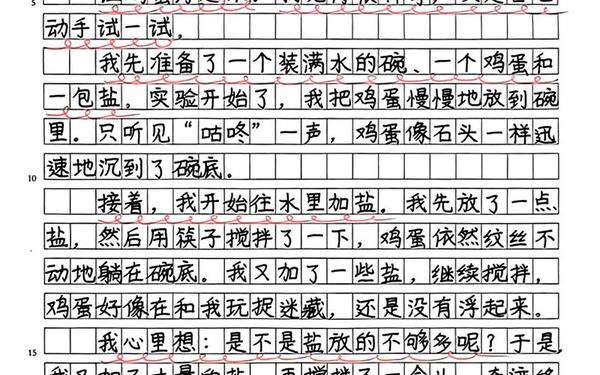 5
动手试一试。
我先准备了一个装满水的碗、一个鸡蛋和
一包盐，实验开始了，我把鸡蛋慢慢地放到碗
里。只听见“咕咚”一声，鸡蛋像石头一样迅
速地沉到了碗底。
10
接着，我开始往水里加盐。我先放了一点
盐，然后用筷子搅拌了一下，鸡蛋依然纹丝不
动地躺在碗底。我又加了一些盐，继续搅拌，
鸡蛋好像在和我玩捉迷藏，还是没有浮起来。
15
我心里想：是不是盐放的不够多呢？于是，